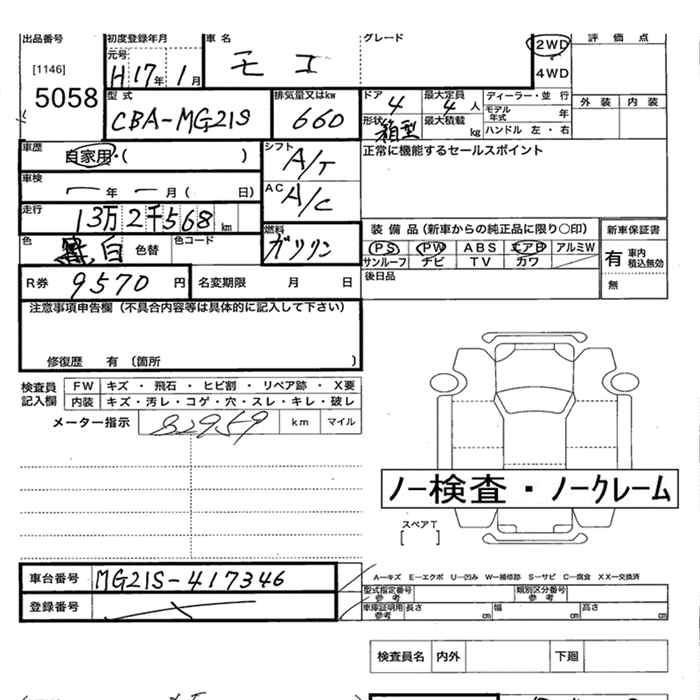 出品番号
[1146]
5058
初度登録年月
元号
H17年1月
車名
モコ
グレード
2WD
4WD
評価点
型式
CBA-MG21S
排気量又はkw
660
ドア 4
最大定員 4人
形状 箱型
最大積載 kg
ディーラー・並行
モデル年式 年
ハンドル 左・右
外装 内装
車歴
自家用・( )
シフト
A/T
正常に機能するセールスポイント
車検
年 月( 日)
AC
A/C
走行
13万2千568km
燃料
ガソリン
色
白 色替
色コード
装備品(新車からの純正品に限り○印)
PS PW ABS エアB アルミW
サンルーフ ナビ TV カワ
新車保証書
有 車内積込無効
無
R券 9570円
名変期限 月 日
後日品
注意事項申告欄(不具合内容等は具体的に記入して下さい)
修復歴 有〔箇所 〕
検査員記入欄
FW キズ・飛石・ヒビ割・リペア跡・X要
内装 キズ・汚レ・コゲ・穴・スレ・キレ・破レ
メーター指示 82959 km マイル
ノー検査・ノークレーム
スペアT
[ ]
車台番号 MG21S-417346
登録番号
A―キズ E―エクボ U―凹み W―補修跡 S―サビ C―腐食 XX―交換済
型式指定番号参考
類別区分番号参考
車庫証明用参考 長さ cm 幅 cm 高さ cm
検査員名 内外 下廻